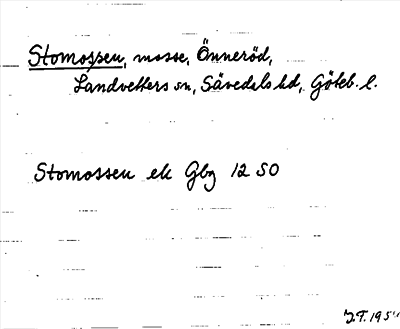 Stomossen, mosse, Önneröd,
Landvetters sn, Sävedals hd, Göteb. l.
Stomossen ek Gbg 12 SO